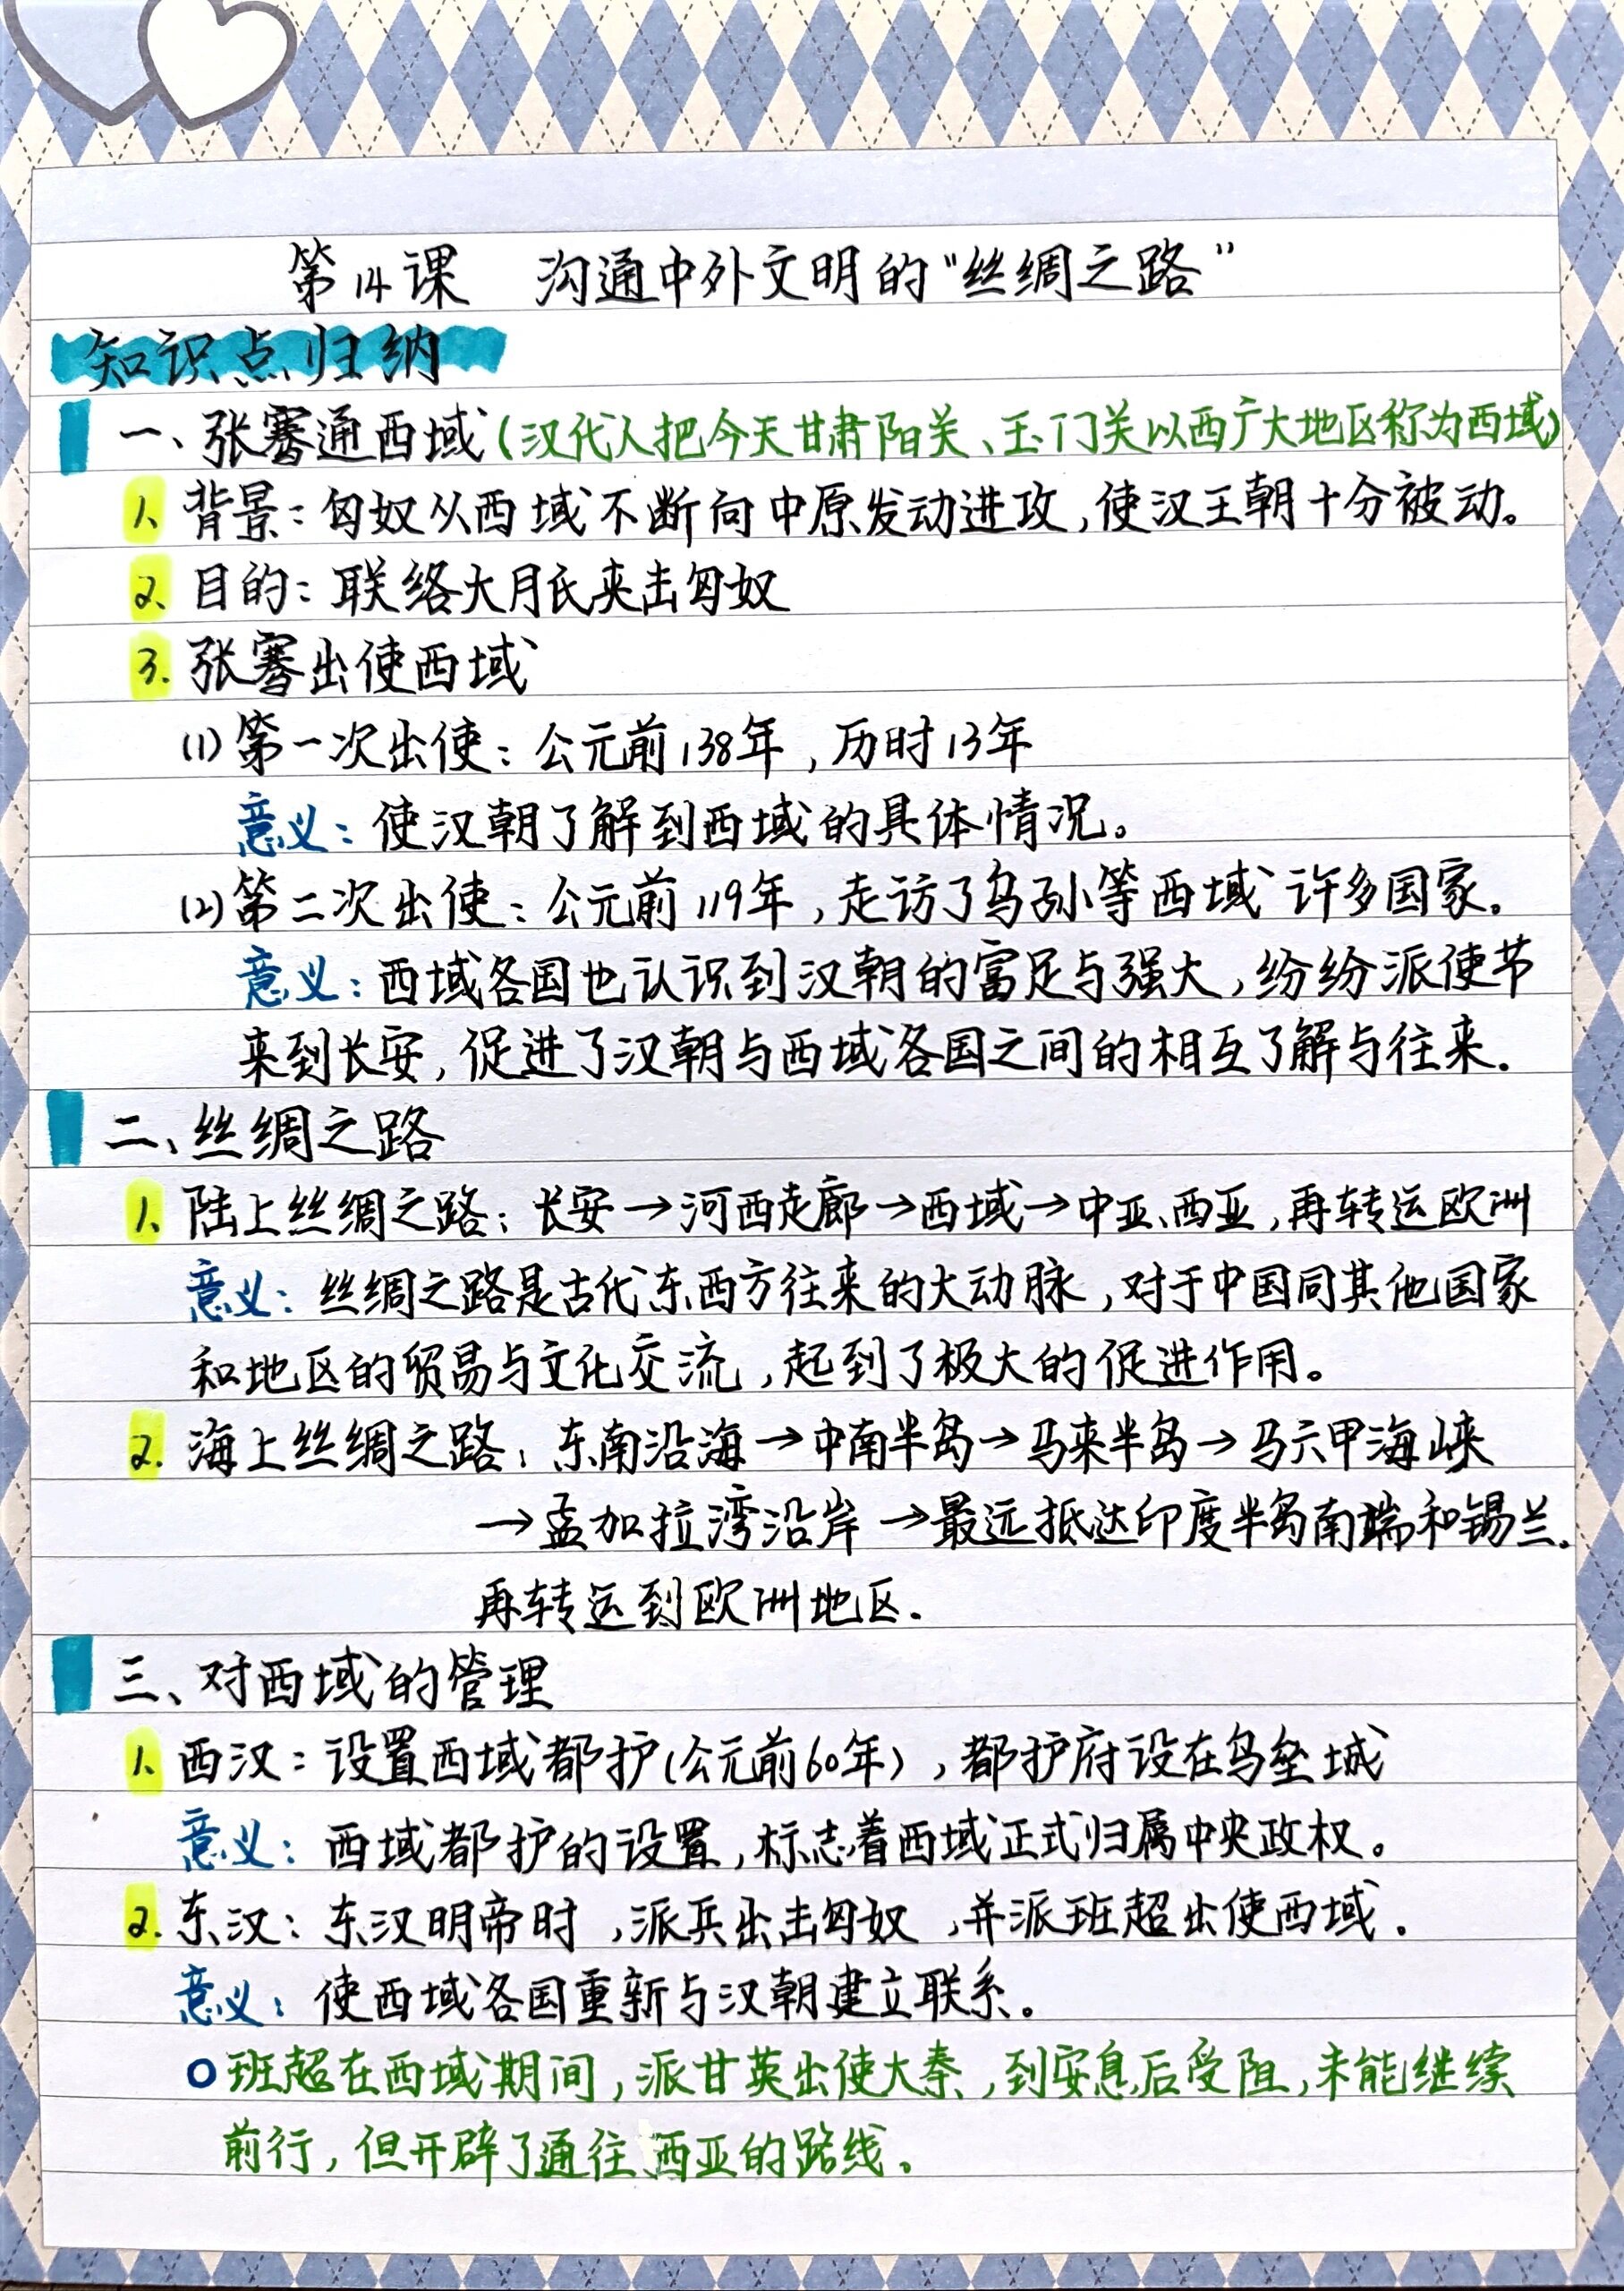 第14课 沟通中外文明的“丝绸之路”
知识点归纳
一、张骞通西域(汉代人把今天甘肃阳关、玉门关以西广大地区称为西域)
1. 背景：匈奴从西域不断向中原发动进攻,使汉王朝十分被动。
2. 目的：联络大月氏夹击匈奴
3. 张骞出使西域
(1)第一次出使：公元前138年,历时13年
意义：使汉朝了解到西域的具体情况。
(2)第二次出使：公元前119年,走访了乌孙等西域许多国家。
意义：西域各国也认识到汉朝的富足与强大,纷纷派使节
来到长安,促进了汉朝与西域各国之间的相互了解与往来.
二、丝绸之路
1. 陆上丝绸之路：长安→河西走廊→西域→中亚、西亚,再转运欧洲
意义：丝绸之路是古代东西方往来的大动脉,对于中国同其他国家
和地区的贸易与文化交流,起到了极大的促进作用。
2. 海上丝绸之路：东南沿海→中南半岛→马来半岛→马六甲海峡
→孟加拉湾沿岸→最远抵达印度半岛南端和锡兰.
再转运到欧洲地区.
三、对西域的管理
1. 西汉：设置西域都护(公元前60年),都护府设在乌垒城
意义：西域都护的设置,标志着西域正式归属中央政权。
2. 东汉：东汉明帝时,派兵出击匈奴,并派班超出使西域.
意义：使西域各国重新与汉朝建立联系。
○班超在西域期间,派甘英出使大秦,到安息后受阻,未能继续
前行,但开辟了通往西亚的路线。